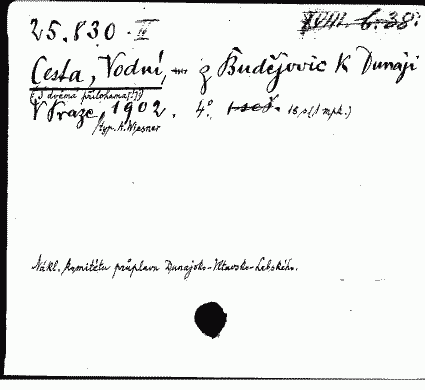 25.830. IV
XVIII. C. 38.
Cesta, Vodní, — z Budějovic k Dunaji
(S dvěma přílohama!))
V Praze, 1902. 4°. 1 seš. 18 s (1 mpk.)
/typ. A. Wiesner
Nákl. Komitétu průplavu Dunajsko-Vltavsko-Labského.